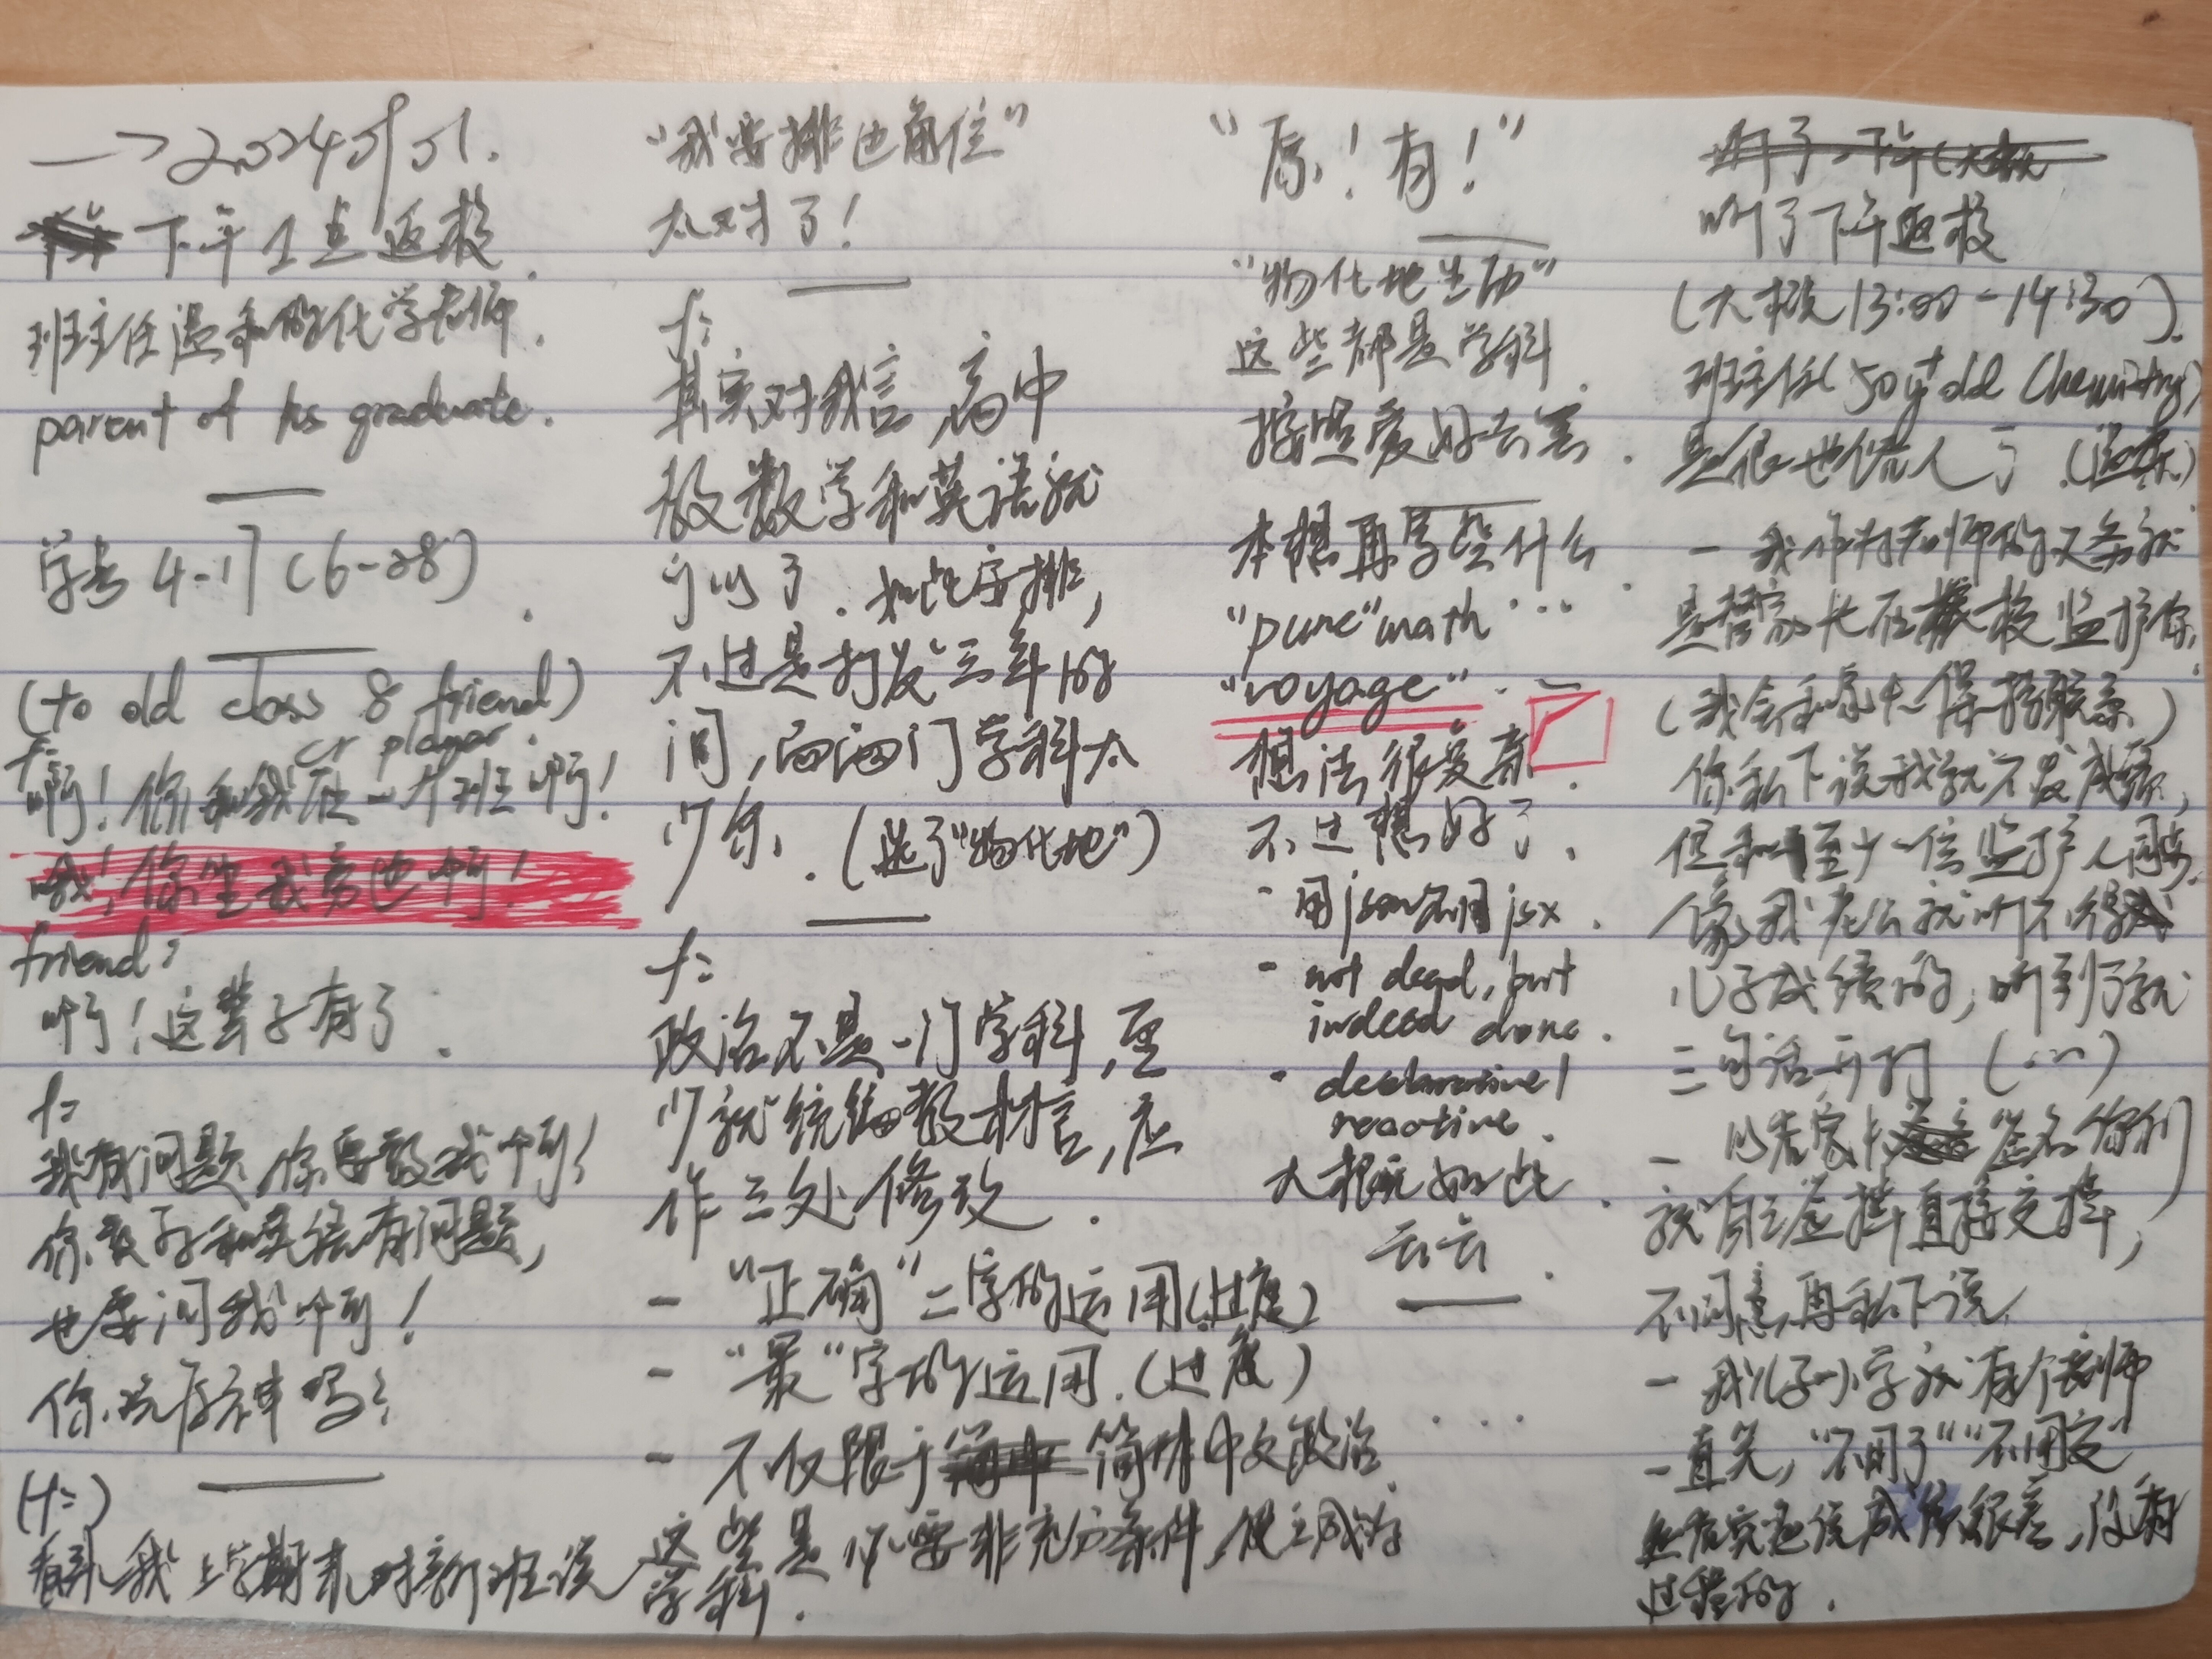 →20240901.
下午1点返校.
班主任温和的化学老师.
parent of his graduate.
学号 4-17 (6-28).
(to old class 8 friend)
or player.
f:
啊！你和我在一个班啊！
哦！你坐我旁边啊！
friend:
啊！这辈子有了.
f:
我有问题,你要教我啊！
你数学和英语有问题,
也要问我啊！
你说
(f:)
看来我上学期末对新班说
"我要排边角位"
太对了！
f:
其实对我言,高中
教数学和英语就
可以了.如此安排,
不过是打发三年时
间,而两门学科太
少尔.(选了"物化地")
f:
政治不是一门学科,至
少就统编教材言,应
作三处修改.
- "正确"二字的运用(过度)
- "最"字的运用.(过度)
- 不仅限于简体中文政治.
这些是必要非充分条件,使之成为
学科.
"原！有！"
"物化地生历"
这些都是学科.
按照爱好去学.
本想再写些什么.
"pure"math ...
"voyage"...
想法很
不过想好了.
- 用json不用jsx.
- not dead, but
indeed done.
- declarative/
reactive.
大概就如此
云云.
...
听了下午返校
(大概13:00-14:30).
班主任(50y+ old Chemistry)
是很
- 我作为老师的义务就
是替家长在校监护你,
(我会和家长保持联系)
你私下说我就不发成绩,
但和至少一位监护人同步.
像我老公就听不得
儿子成绩的,听到了就
三句话开打 (...)
- 以后家长签名你们
就自己签掉直接交掉,
不同意再私下说,
- 我儿子小学就有个老师
一直笑,"不用了""不用交"
然后突然说成绩很差,没有
过程的.